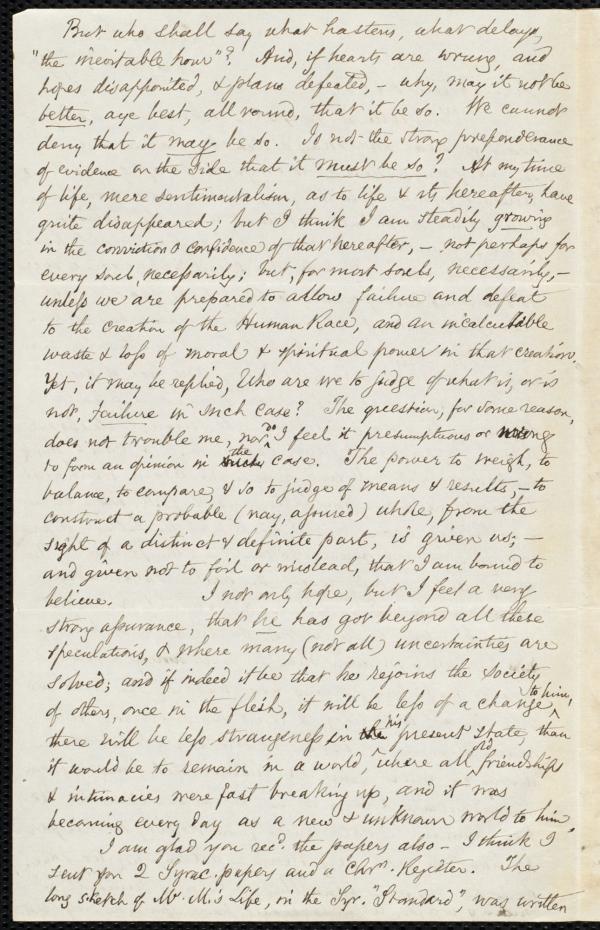 But who shall say what hastens, what delays,
"the inevitable hour"? And, if hearts are wrung, and
hopes disappointed, & plans defeated, – why, may it not be
better, aye best, all round, that it be so. We cannot
deny that it may be so. Is not the strong preponderance
of evidence on the side that it must be so? At my time
of life, mere sentimentalism, as to life & its hereafter, have
quite disappeared; but I think I am steadily growing
in the conviction & confidence of that hereafter, – not perhaps for
every soul, necessarily; but, for most souls, necessarily, –
unless we are prepared to allow failure and defeat
to the Creation of the Human Race, and an incalculable
waste & loss of moral & spiritual power in that creation.
Yet, it may be replied, Who are we to judge of what is, or is
not, failure in such case? The question, for some reason,
does not trouble me, nor do I feel it presumptuous or wrong
to form an opinion in the case. The power to weigh, to
balance, to compare, & so to judge of means & results, – to
construct a probable (nay, assured) whole, from the
sight of a distinct & definite part, is given us; –
and given not to foil or mislead, that I am bound to
believe. I not only hope, but I feel a very
strong assurance, that he has got beyond all these
speculations, & where many (not all) uncertainties are
solved; and if indeed it be that he rejoins the society
of others, once in the flesh, it will be less of a change to him,
there will be less strangeness in his present state, than
it would be to remain in a world, where all old friendships
& intimacies were fast breaking up, and it was
becoming every day as a new & unknown world to him.
I am glad you recd. the papers also – I think I
sent you 2 Syrac. papers and a Chrn. Register. The
long sketch of Mr. M's Life, in the Syr. "Standard", was written